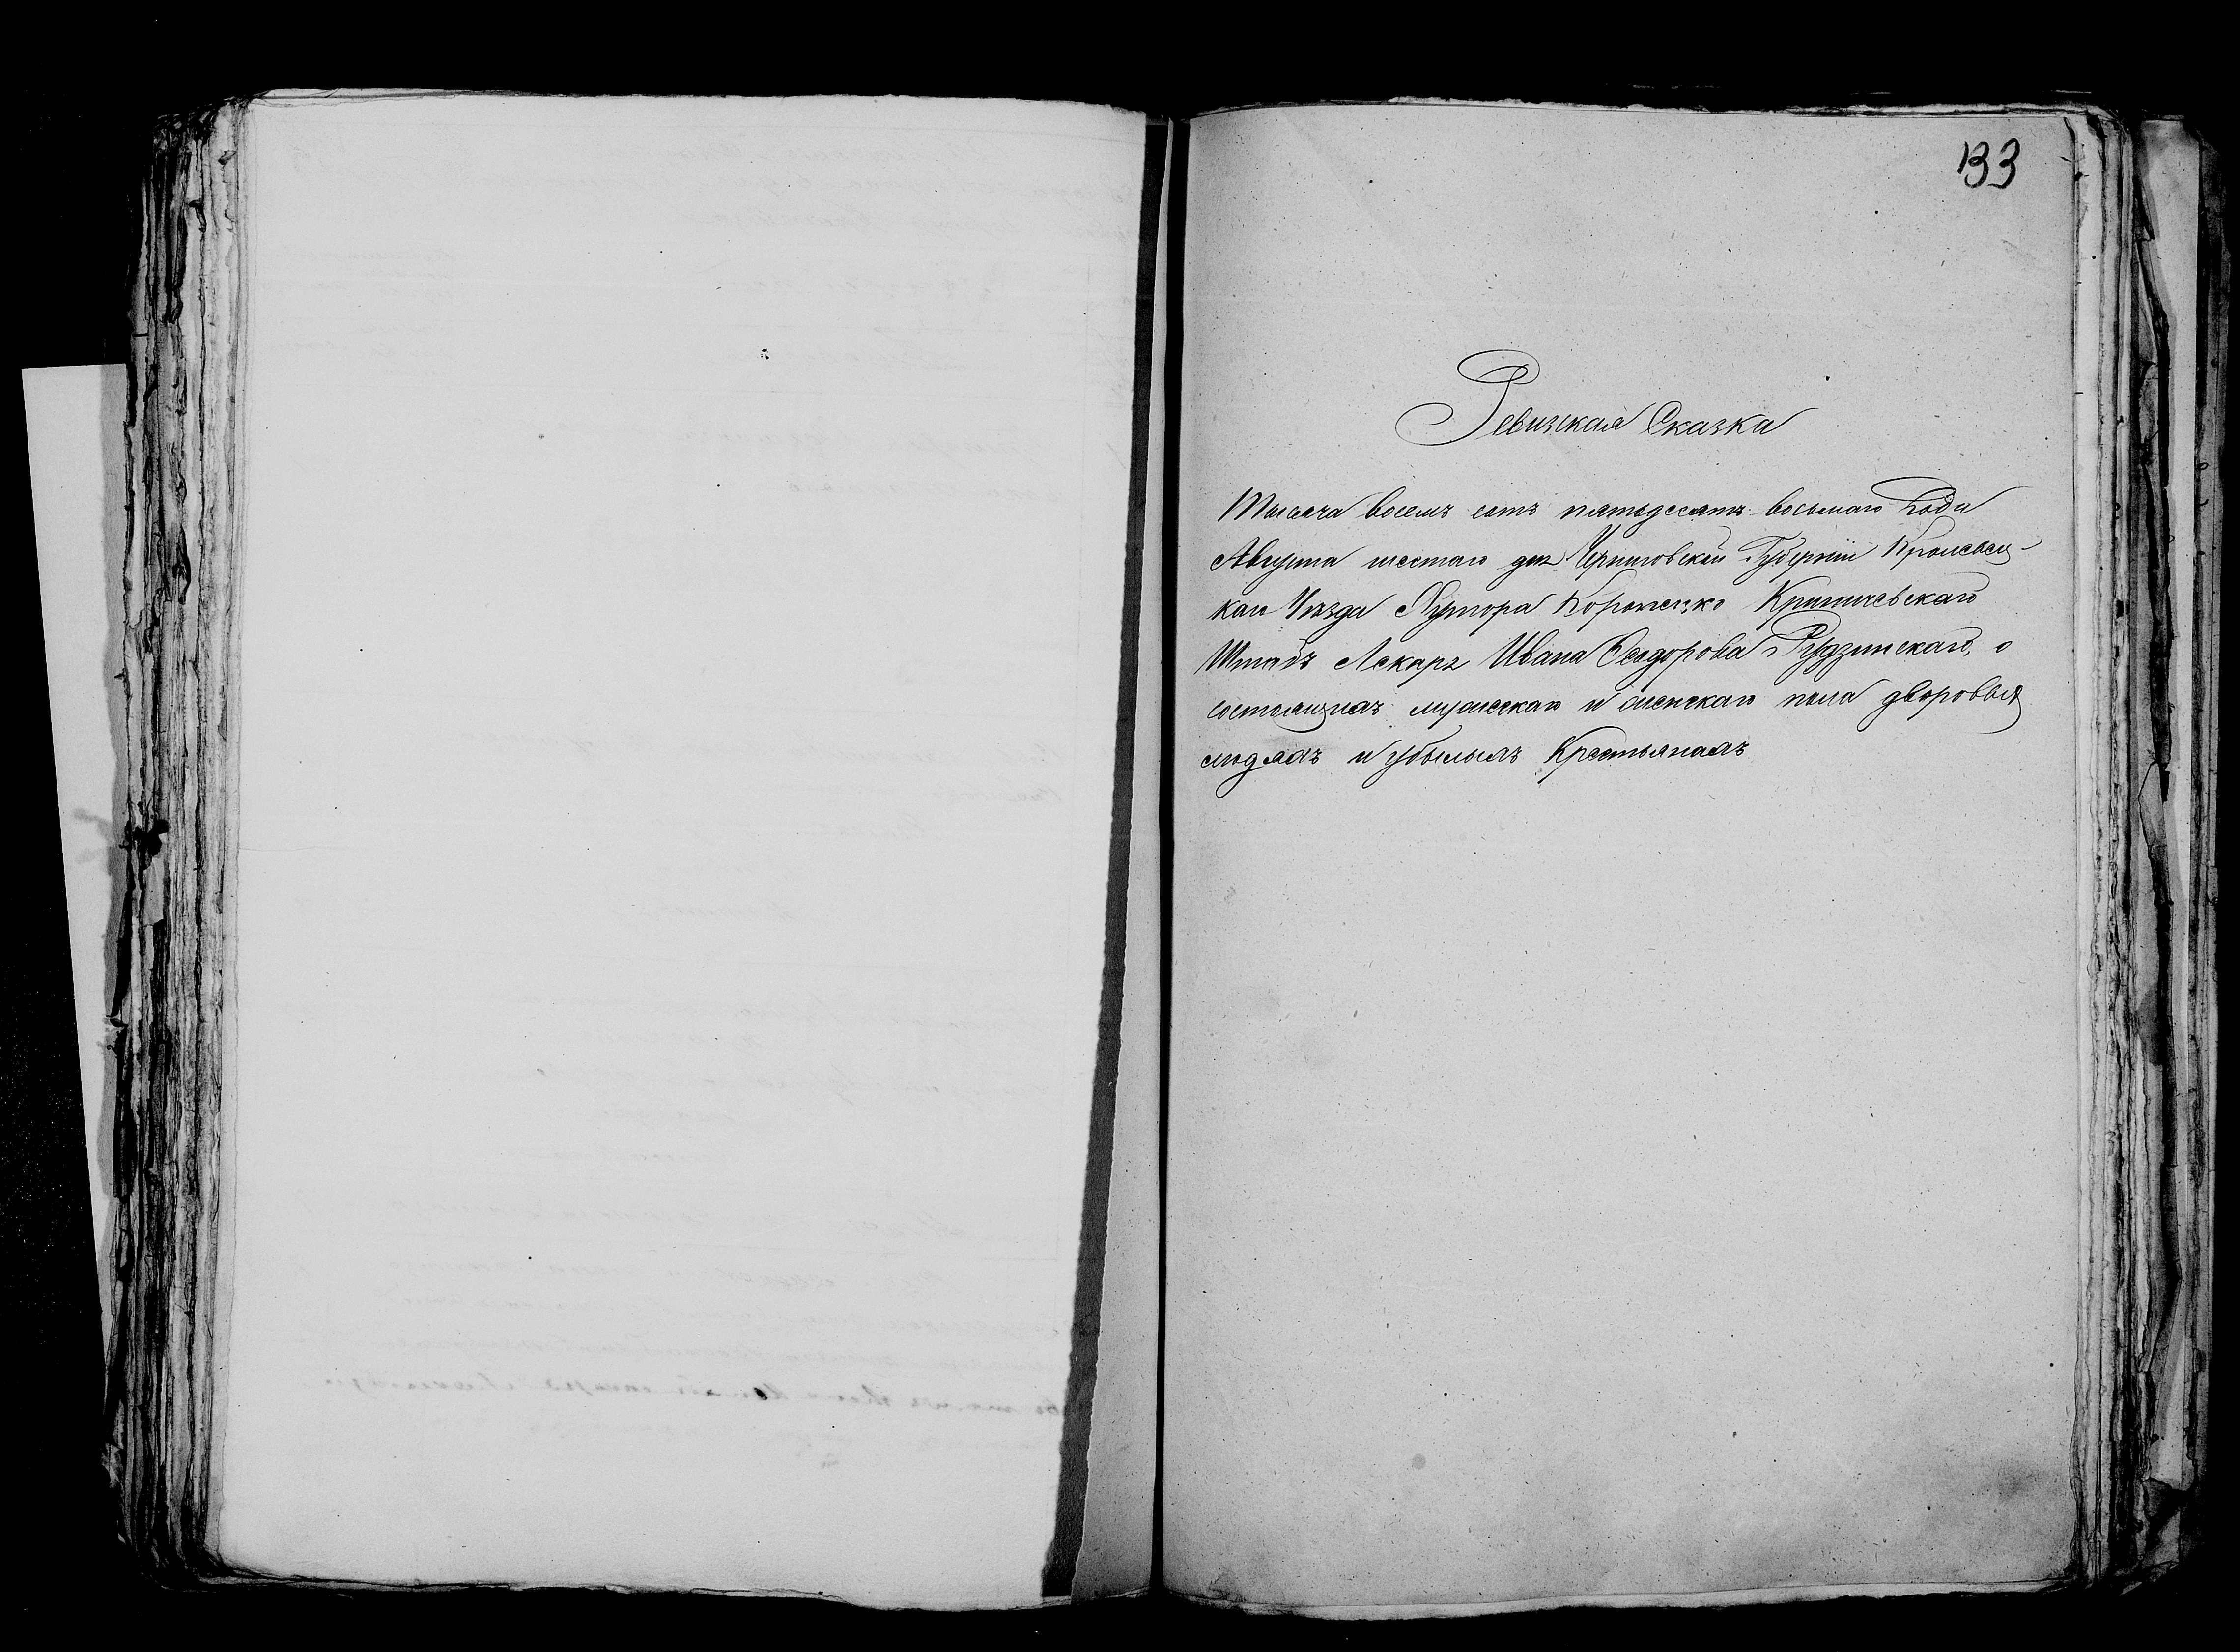 133
Ревизская Сказка
Тысяча восемъ сотъ пятьдесятъ восьмаго Года
Августа шестаго дня Черниговской Губерніи Кролевец-
каго Уѣзда Хутора
Штабъ Лекаря Ивана Федорова Рудзинскаго, о
состоящихъ мужескаго и женскаго пола дворовыхъ
людяхъ и убылыхъ Крестьянахъ